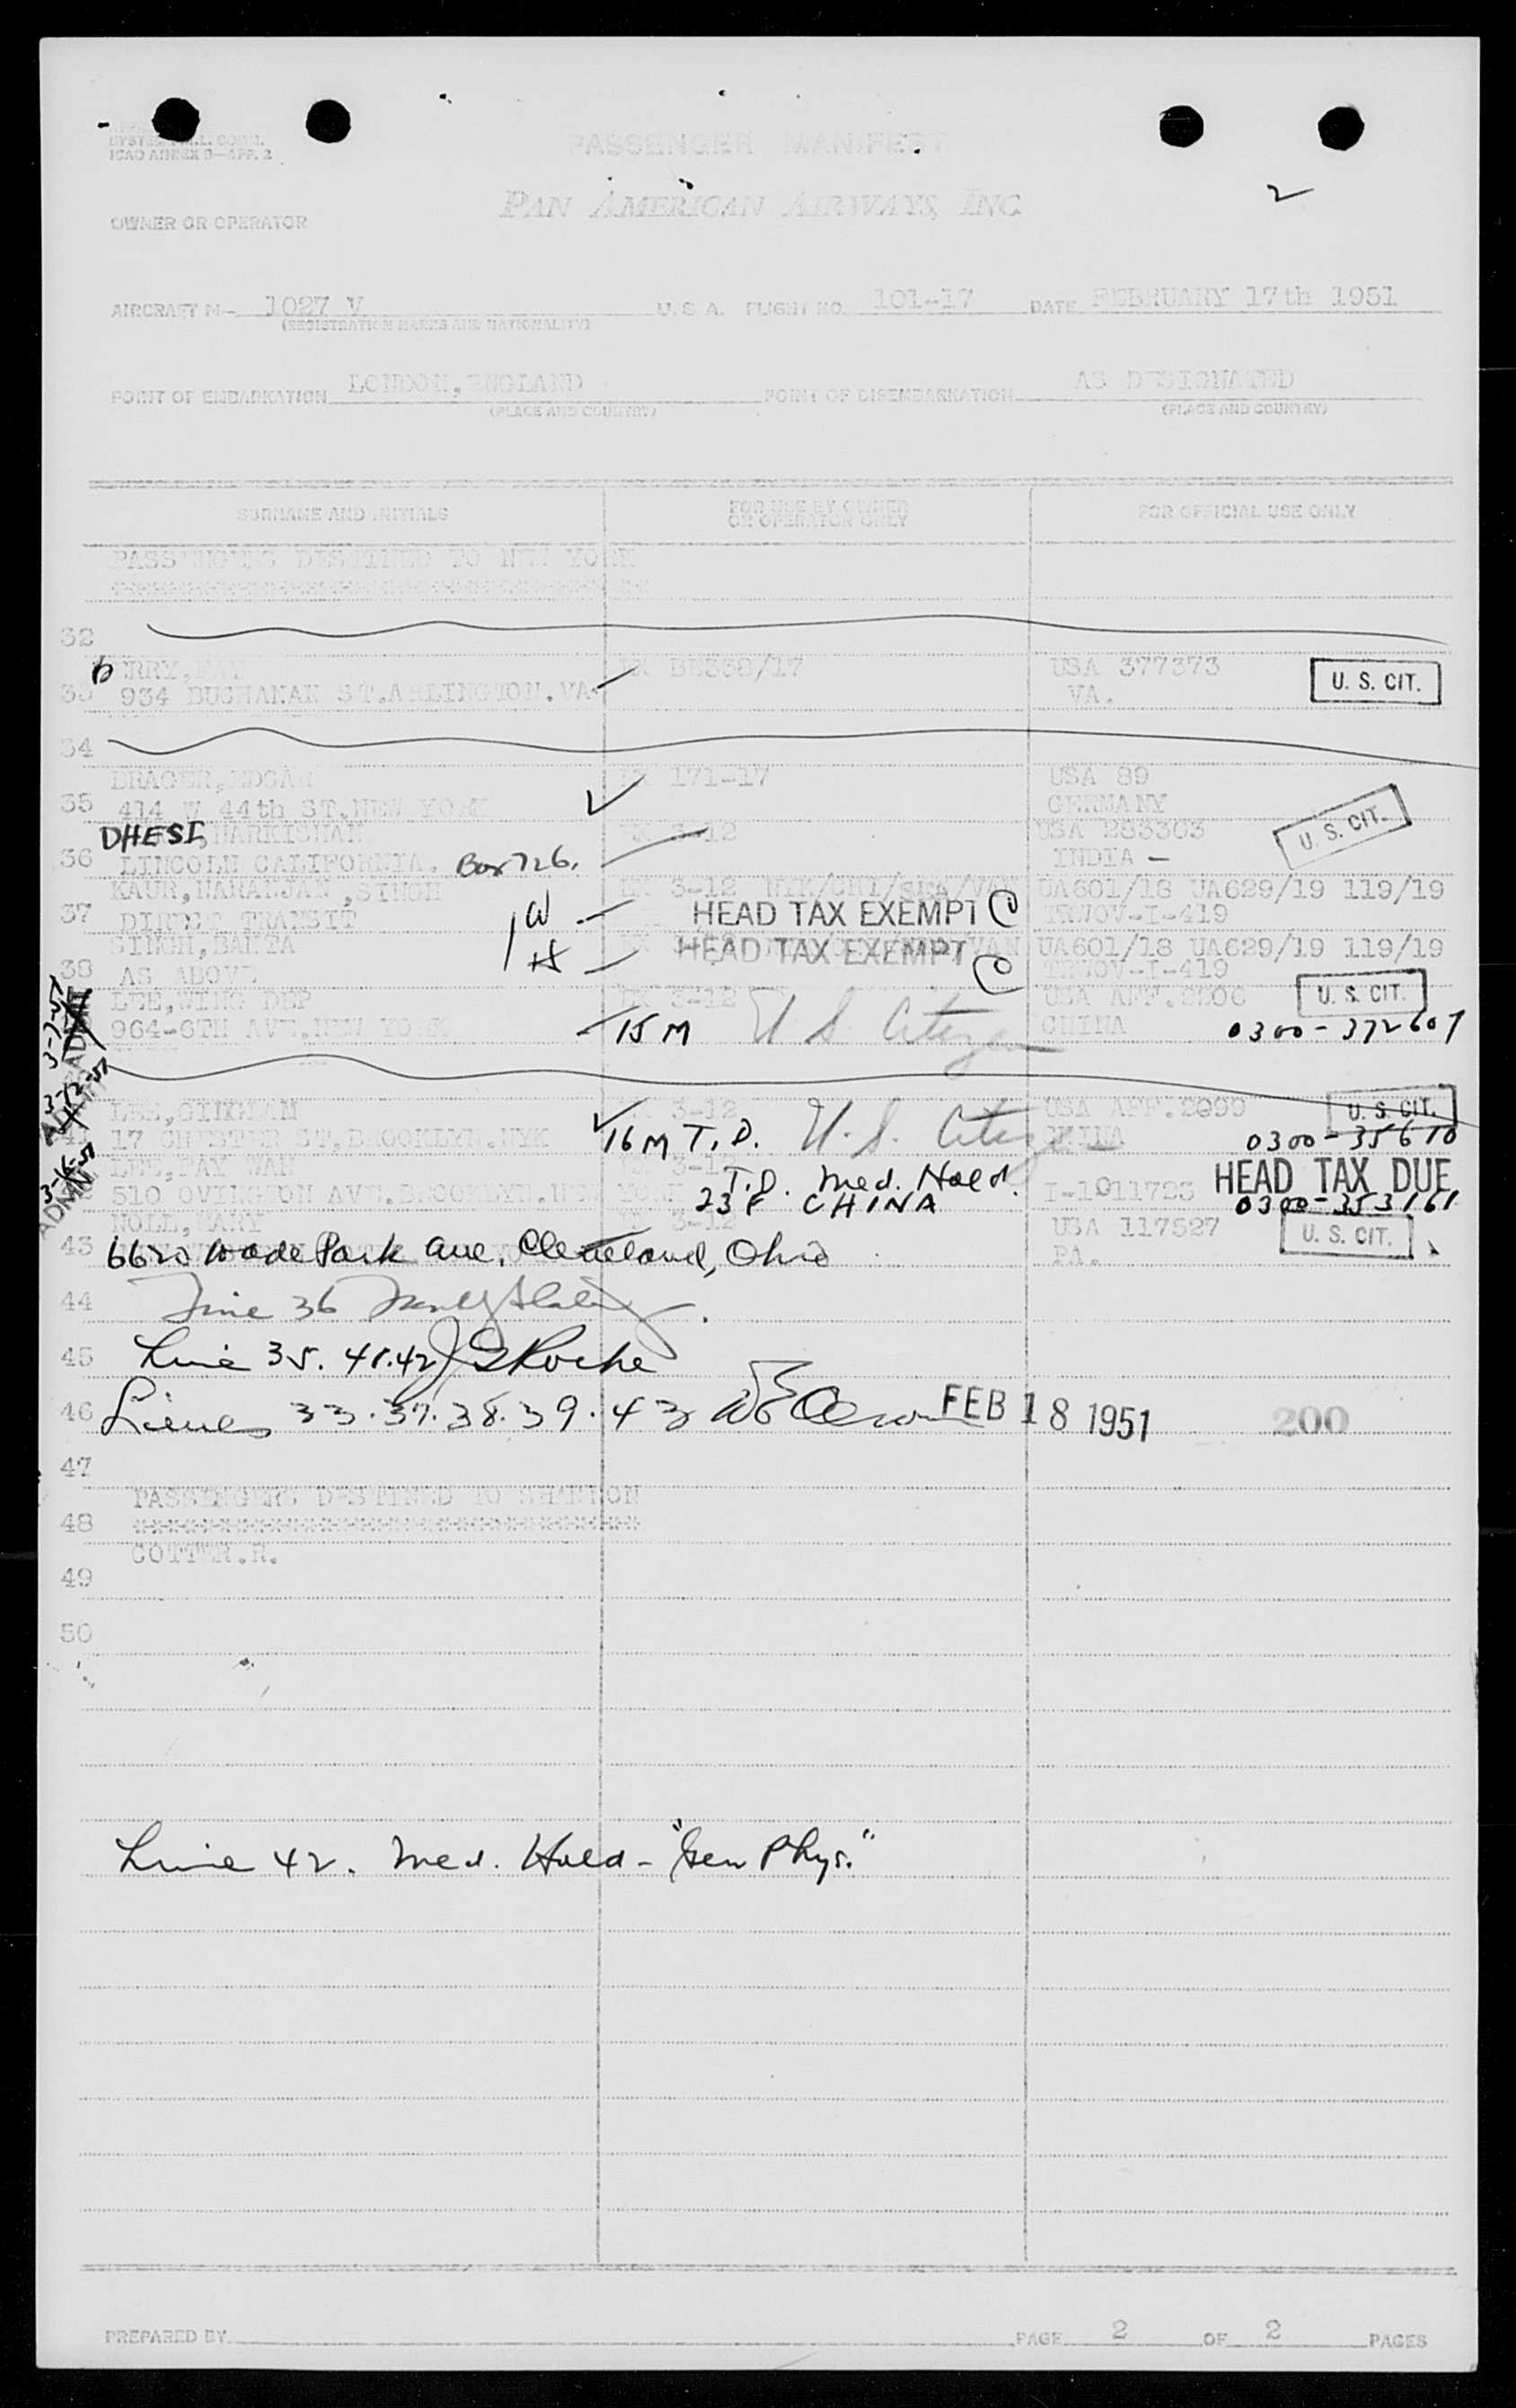 SYSTEM
ICAO ANNEX 9—APP. 2
PASSENGER MANIFEST
2
OWNER OR OPERATOR
PAN AMERICAN AIRWAYS, INC.
AIRCRAFT N- 1027 V U. S. A. FLIGHT NO. 101-17 DATE FEBRUARY 17th 1951
(REGISTRATION MARKS AND NATIONALITY)
POINT OF EMBARKATION LONDON, ENGLAND POINT OF DISEMBARKATION AS DESIGNATED
(PLACE AND COUNTRY) (PLACE AND COUNTRY)
SURNAME AND INITIALS FOR USE BY OWNER OR OPERATOR ONLY FOR OFFICIAL USE ONLY
PASSENGERS DESTINED TO NEW YORK
32
RRY, BE338/17 USA 377373
934 BUCHANAN ST.ARLINGTON.VA. VA. U. S. CIT.
34
171-17 USA 89
35 414 W 44th ST.NEW YORK GERMANY
DHESI, HARKISHAN 3-12 USA 283303 U. S. CIT.
36 LINCOLN CALIFORNIA. Box 726. INDIA -
KAUR, NARANJAN, SINGH 3-12 UA601/18 UA629/19 119/19
37 DIRECT TRANSIT 1 W HEAD TAX EXEMPT TRWOV-I-419
SINGH, BANTA HEAD TAX EXEMPT UA601/18 UA629/19 119/19
38 AS ABOVE 1 H TRWOV-I-419
LEE, WING DEP 3-12 USA AFF. U. S. CIT.
964-6TH AVE.NEW YORK 15 M U S Citizen CHINA 0300-372607
3-7-51
3-12-51
3-15-51
ADMIN
LEE, 3-12 USA AFF.2999 U. S. CIT.
41 17 CHESTER ST.BROOKLYN.NYK 16 M T.D. U.S. Citizen CHINA 0300-35610
LEE, FAY WAH 3-12 T.D. Med. Hold. HEAD TAX DUE
510 OVINGTON AVE.BROOKLYN.NEW YORK 23 F CHINA I-1011723 0300-353161
NOLL, MARY 3-12 USA 117527 U. S. CIT.
43 6620 Wade Park Ave. Cleveland, Ohio PA.
44 Line 36
45 Line 35. 41.42 Roche
46 Lines 33.37.38.39.43 FEB 18 1951 200
47
PASSENGERS DESTINED TO SHANNON
48
COTTER.R.
49
50
Line 42. Med. Hold - "Gen Phys."
PREPARED BY PAGE 2 OF 2 PAGES